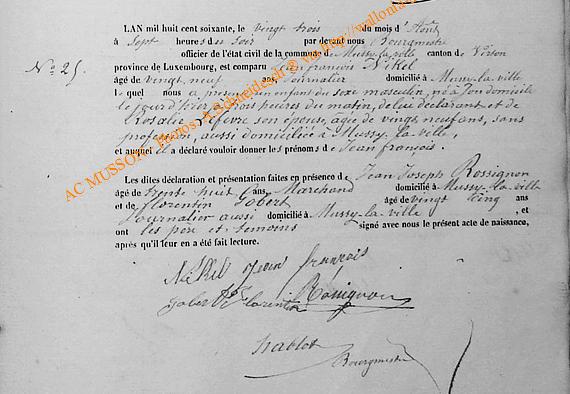 LAN mil huit cent soixante, le vingt trois du mois d'Août
à sept heures du soir par devant nous Bourgmestre
officier de l'état civil de la commune de Mussy-la-ville canton de Virton
province de Luxembourg, est comparu Jean françois Nikel
N° 25.
âgé de vingt neuf ans, Journalier domicilié à Mussy-la-ville
lequel nous a présenté un enfant du sexe masculin, né à son domicile
le jour d'hier à trois heures du matin, de lui déclarant et de
Rosalie Lefevre son épouse, âgée de vingt neuf ans, sans
profession, aussi domiciliée à Mussy-la-ville,
et auquel il a déclaré vouloir donner les prénoms de Jean françois.
Les dites déclaration et présentation faites en présence de Jean Joseph Rossignon
âgé de trente huit ans, Marchand domicilié à Mussy-la-ville
et de florentin Gobert âgé de vingt cinq ans
Journalier aussi domicilié à Mussy-la-ville , et
ont les père et témoins signé avec nous le présent acte de naissance,
après qu'il leur en a été fait lecture.
Nikel Jean françois
gobert florentin Rossignon
hablot
Bourgmestre
AC MUSSON - Photos : A.Schneidesch @ via http://wallonia